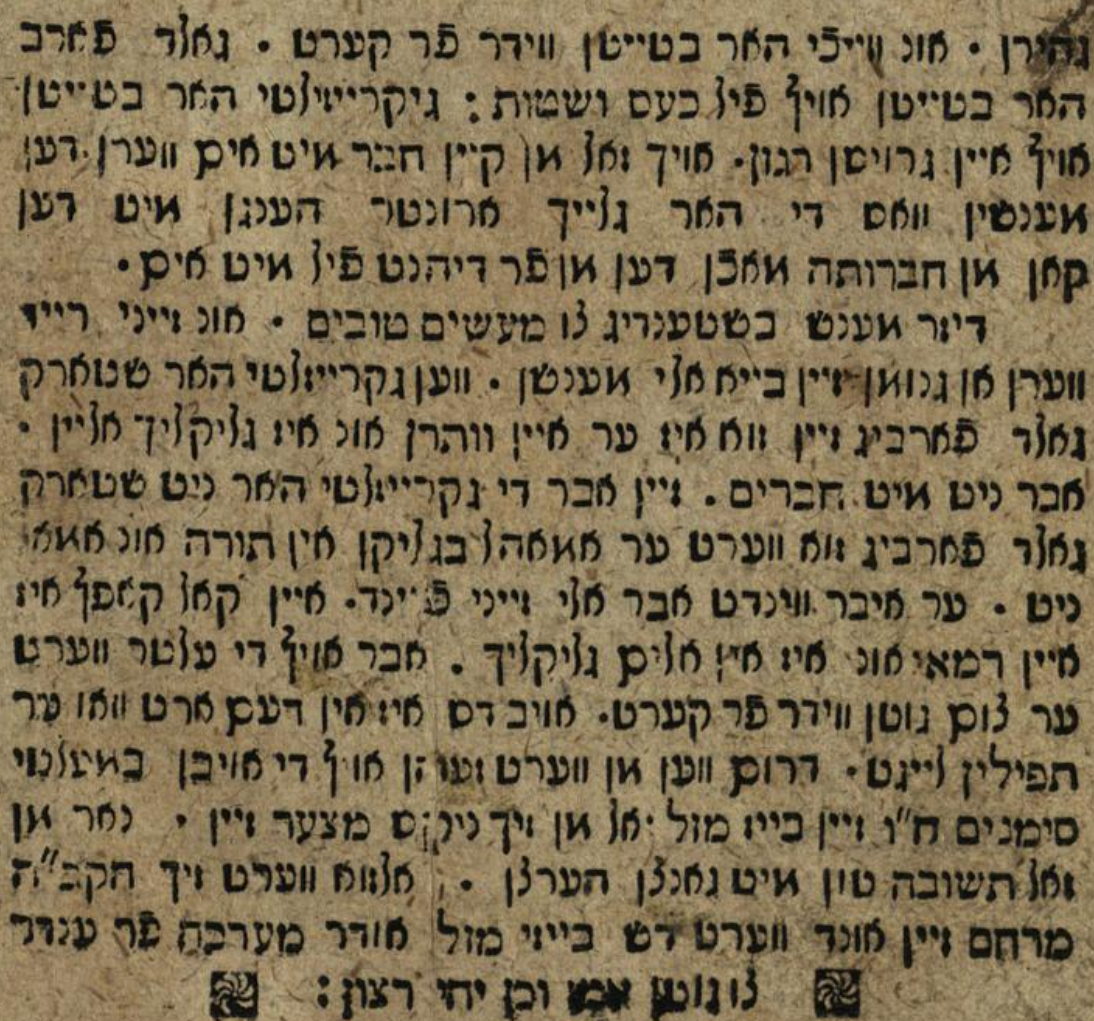 גהירן • אונ ווייכי האר בטייטן ווידר פֿר קערט • גאלד פֿארב
האר בטייטן אויף פֿיל כעס ושטות : גיקרייזלטי האר בטייטן
אויף איין גרויסן רגזן • אויך זאל מן קיין חבר מיט אים ווערן דען
מענטשין וואס די האר גלייך ארונטר הענגן מיט דען
קאן מן חברותה מאכֿן דען מן פֿר דיהנט פֿיל מיט אים •
דיזר מענש בשטענדיג צו מעשים טובים • אונ זייני רייד
ווערן אן גנומן זיין בייא אלי מענטשן • ווען גקרייזלטי האר שטארק
גאלד פֿארביג זיין זוא איז ער איין ווהרן אונ איז גליקליך אליין •
אבר ניט מיט חברים • זיין אבר די גקרייזלטי האר ניט שטארק
גאלד פֿארביג זוא ווערט ער אמאהל בגליקן אין תורה אונ אמאל
ניט • ער איבר ווינדט אבר אלי זייני פֿיינד • איין קאל קאפף איז
איין רמאי אונ איז אין אלים גליקליך • אבר אויף די עלטר ווערט
ער צום גוטן ווידר פֿר קערט • אויב דס איז אין דעם ארט וואו ער
תפילין לייגט • דרום ווען מן ווערט זעהן אויף די אויבן במעלטי
סימנים ח"ו זיין בייז מזל זאל מן זיך ניקס מצער זיין • נאר מן
זאל תשובה טון מיט גאנצן הערצן • אלזוא ווערט זיך הקב"ה
מרחם זיין אונד ווערט דש בייזי מזל אודר מערכה פֿר ענדר
צו גוטן אמן וכן יהי רצון :